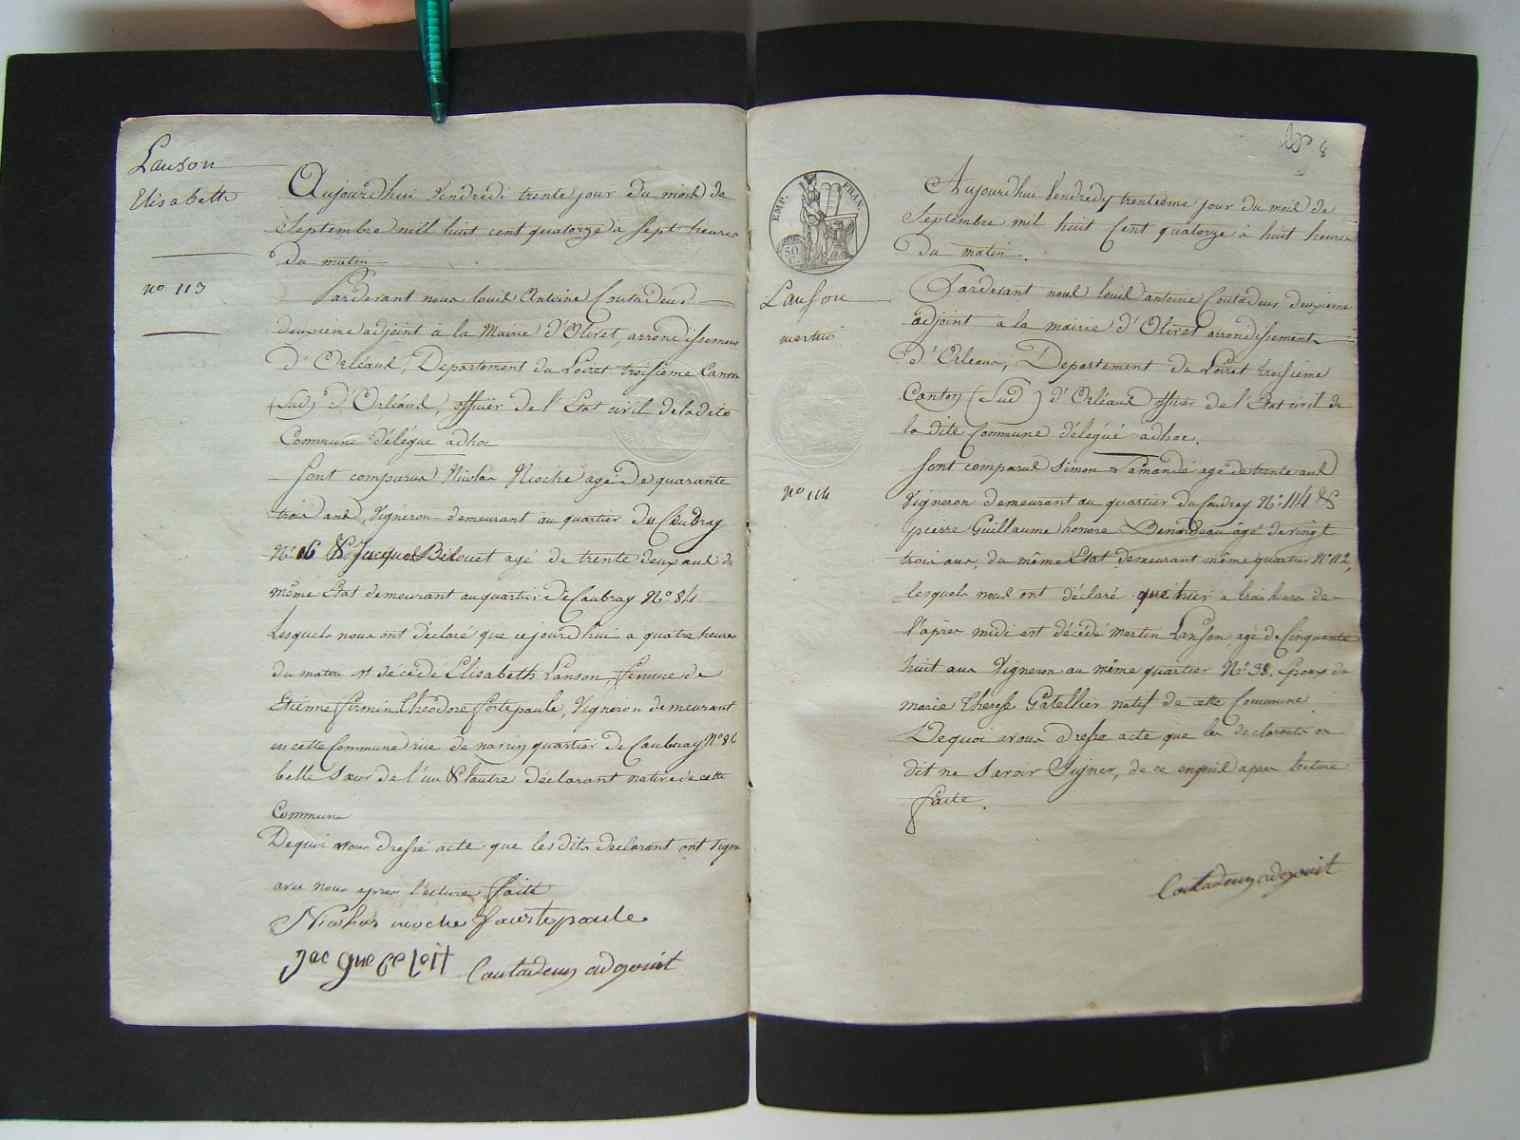 Lanson
Elisabeth
no 113
Aujourdhui Vendredi trente jour du mois de
Septembre mill huit cent quatorze a sept heures
du matin
Pardevant nous louis Antoine Coutadeus
deuxième adjoint à la Mairie d'Olivet, arrondissement
D'Orléans, Departement du Loiret troisième Canton
(Sud) d'Orléans, officier de l'Etat civil de ladite
Commune délégué adhoc
Sont comparus Nicolas Rioche agé de quarante
trois ans, Vigneron demeurant au quartier du Caubray
No 16 & Jacques Belouet agé de trente deux ans du
même Etat demeurant au quartier de Caubray No 84
Lesquels nous ont déclaré que cejourdhui a quatre heures
du matin est décédé Elisabeth Lanson, femme de
Etienne firmin Théodore fortepaule, Vigneron demeurant
en cette Commune rue de quartier de Caubray No 86
belle Sœur de l'un & lautre déclarant native de cette
Commune
Dequoi nous dressé acte que les dits déclarant ont signé
avec nous apres lecture faite
Nicolas rioche faurtepaule
Jacque Beloit Coutadeus adjouint
EMP. FRAN.
50
Lanson
martin
no 114
Aujourdhui Vendredy trentième jour du mois de
Septembre mil huit Cent quatorze à huit heures
du matin.
Pardevant nous louis antoine Coutadeus deuxieme
adjoint à la mairie d'Olivet arrondissement
d'Orleans, Departement du Loiret troisieme
Canton (Sud) d'Orléans officier de l'Etat civil de
la dite Commune délégué adhoc.
Sont comparus Simon Lamandé agé de trente ans
Vigneron demeurant au quartier du Coudray No 114 &
pierre Guillaume honore Benardeau âgé de vingt
trois ans, du même Etat demeurant même quartier No 112,
lesquels nous ont déclaré que hier a trois heures de
l'après midi est décédé Martin Lanson agé de Cinquante
huit ans Vigneron au même quartier No 38. Epoux de
marie Therese Gatellier natif de cette Commune
Dequoi nous dressé acte que les declarants on
dit ne Savoir Signer, de ce enquis apres lecture
faite.
Coutadeus adjouint